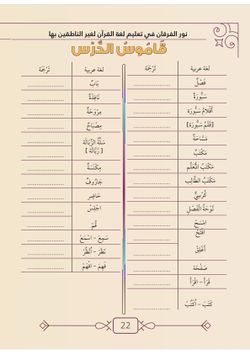 نور الفرقان في تعليم لغة القرآن لغير الناطقين بها
قَامُوسُ الدَّرْسِ
لغة عربية
تَرْجَمَة
فَصْلٌ
سَبُّورَةٌ
أَقْلَامُ سَبُّورَه
[قَلَمُ سَبُّورَه]
مَسَّاحَةٌ
مَكْتَبٌ
مَكْتَبُ الْمُعَلِّمِ
مَكْتَبُ الطَّالِبِ
كُرْسِيٌّ
لَوْحَةُ الْفَصْلِ
امْسَحْ
افْتَحْ
أَغْلِقْ
صَفْحَة
قَرَأَ - اقْرَأْ
كَتَبَ - اُكْتُبْ
لغة عربية
تَرْجَمَة
بَابٌ
نَافِذَةٌ
مِرْوَحَةٌ
مِصْبَاحٌ
سَلَّةُ الزِّبَالَةِ
[زِبَالَة]
مِكْنَسَةٌ
جَارُوفٌ
حَاضِر
اجْلِسْ
قُمْ
سَمِعَ - اسْمَعْ
نَظَرَ - اُنْظُرْ
فَهِمَ - افْهَمْ
22